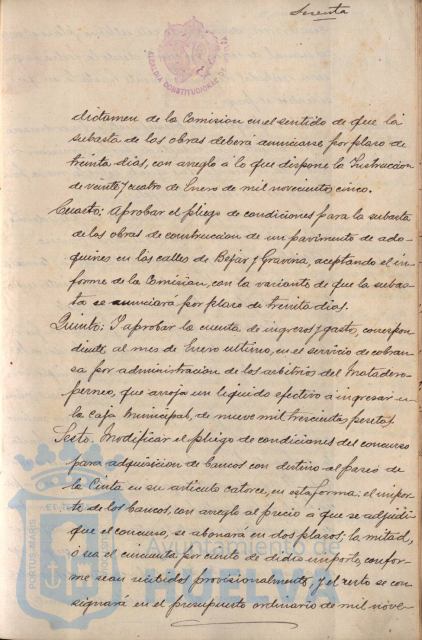 Sesenta
ALCALDIA CONSTITUCIONAL DE
dictamen de la Comision en el sentido de que la
subasta de las obras deberá anunciarse por plazo de
treinta dias, con arreglo á lo que dispone la Instruccion
de veinte y cuatro de Enero de mil novecientos cinco.
Cuarto: Aprobar el pliego de condiciones para la subasta
de las obras de construccion de un pavimento de ado-
quines en las calles de Bejar y Gravina, aceptando el in-
forme de la Comision, con la variante de que la subas-
ta se anunciará por plazo de treinta dias.
Quinto: Y aprobar la cuenta de ingresos y gastos, correspon
diente al mes de Enero ultimo, en el servicio de cobran-
za por administracion de los arbitrios del Matadero-
perneo, que arroja un liquido efectivo á ingresar en
la Caja Municipal, de nueve mil trescientas pesetas.
Sesto. Modificar el pliego de condiciones del concurso
para adquisicion de bancos con destino al paseo de
la Cinta en su articulo catorce, en esta forma: el impor-
te de los bancos, con arreglo al precio á que se adjudi-
que el concurso, se abonará en dos plazos; la mitad,
ó sea el cincuenta por ciento de dicho importe, confor-
me sean recibidos provisionalmente, y el resto se con
signará en el presupuesto ordinario de mil nove-
PORTUS MARIS
Ayuntamiento de
HUELVA